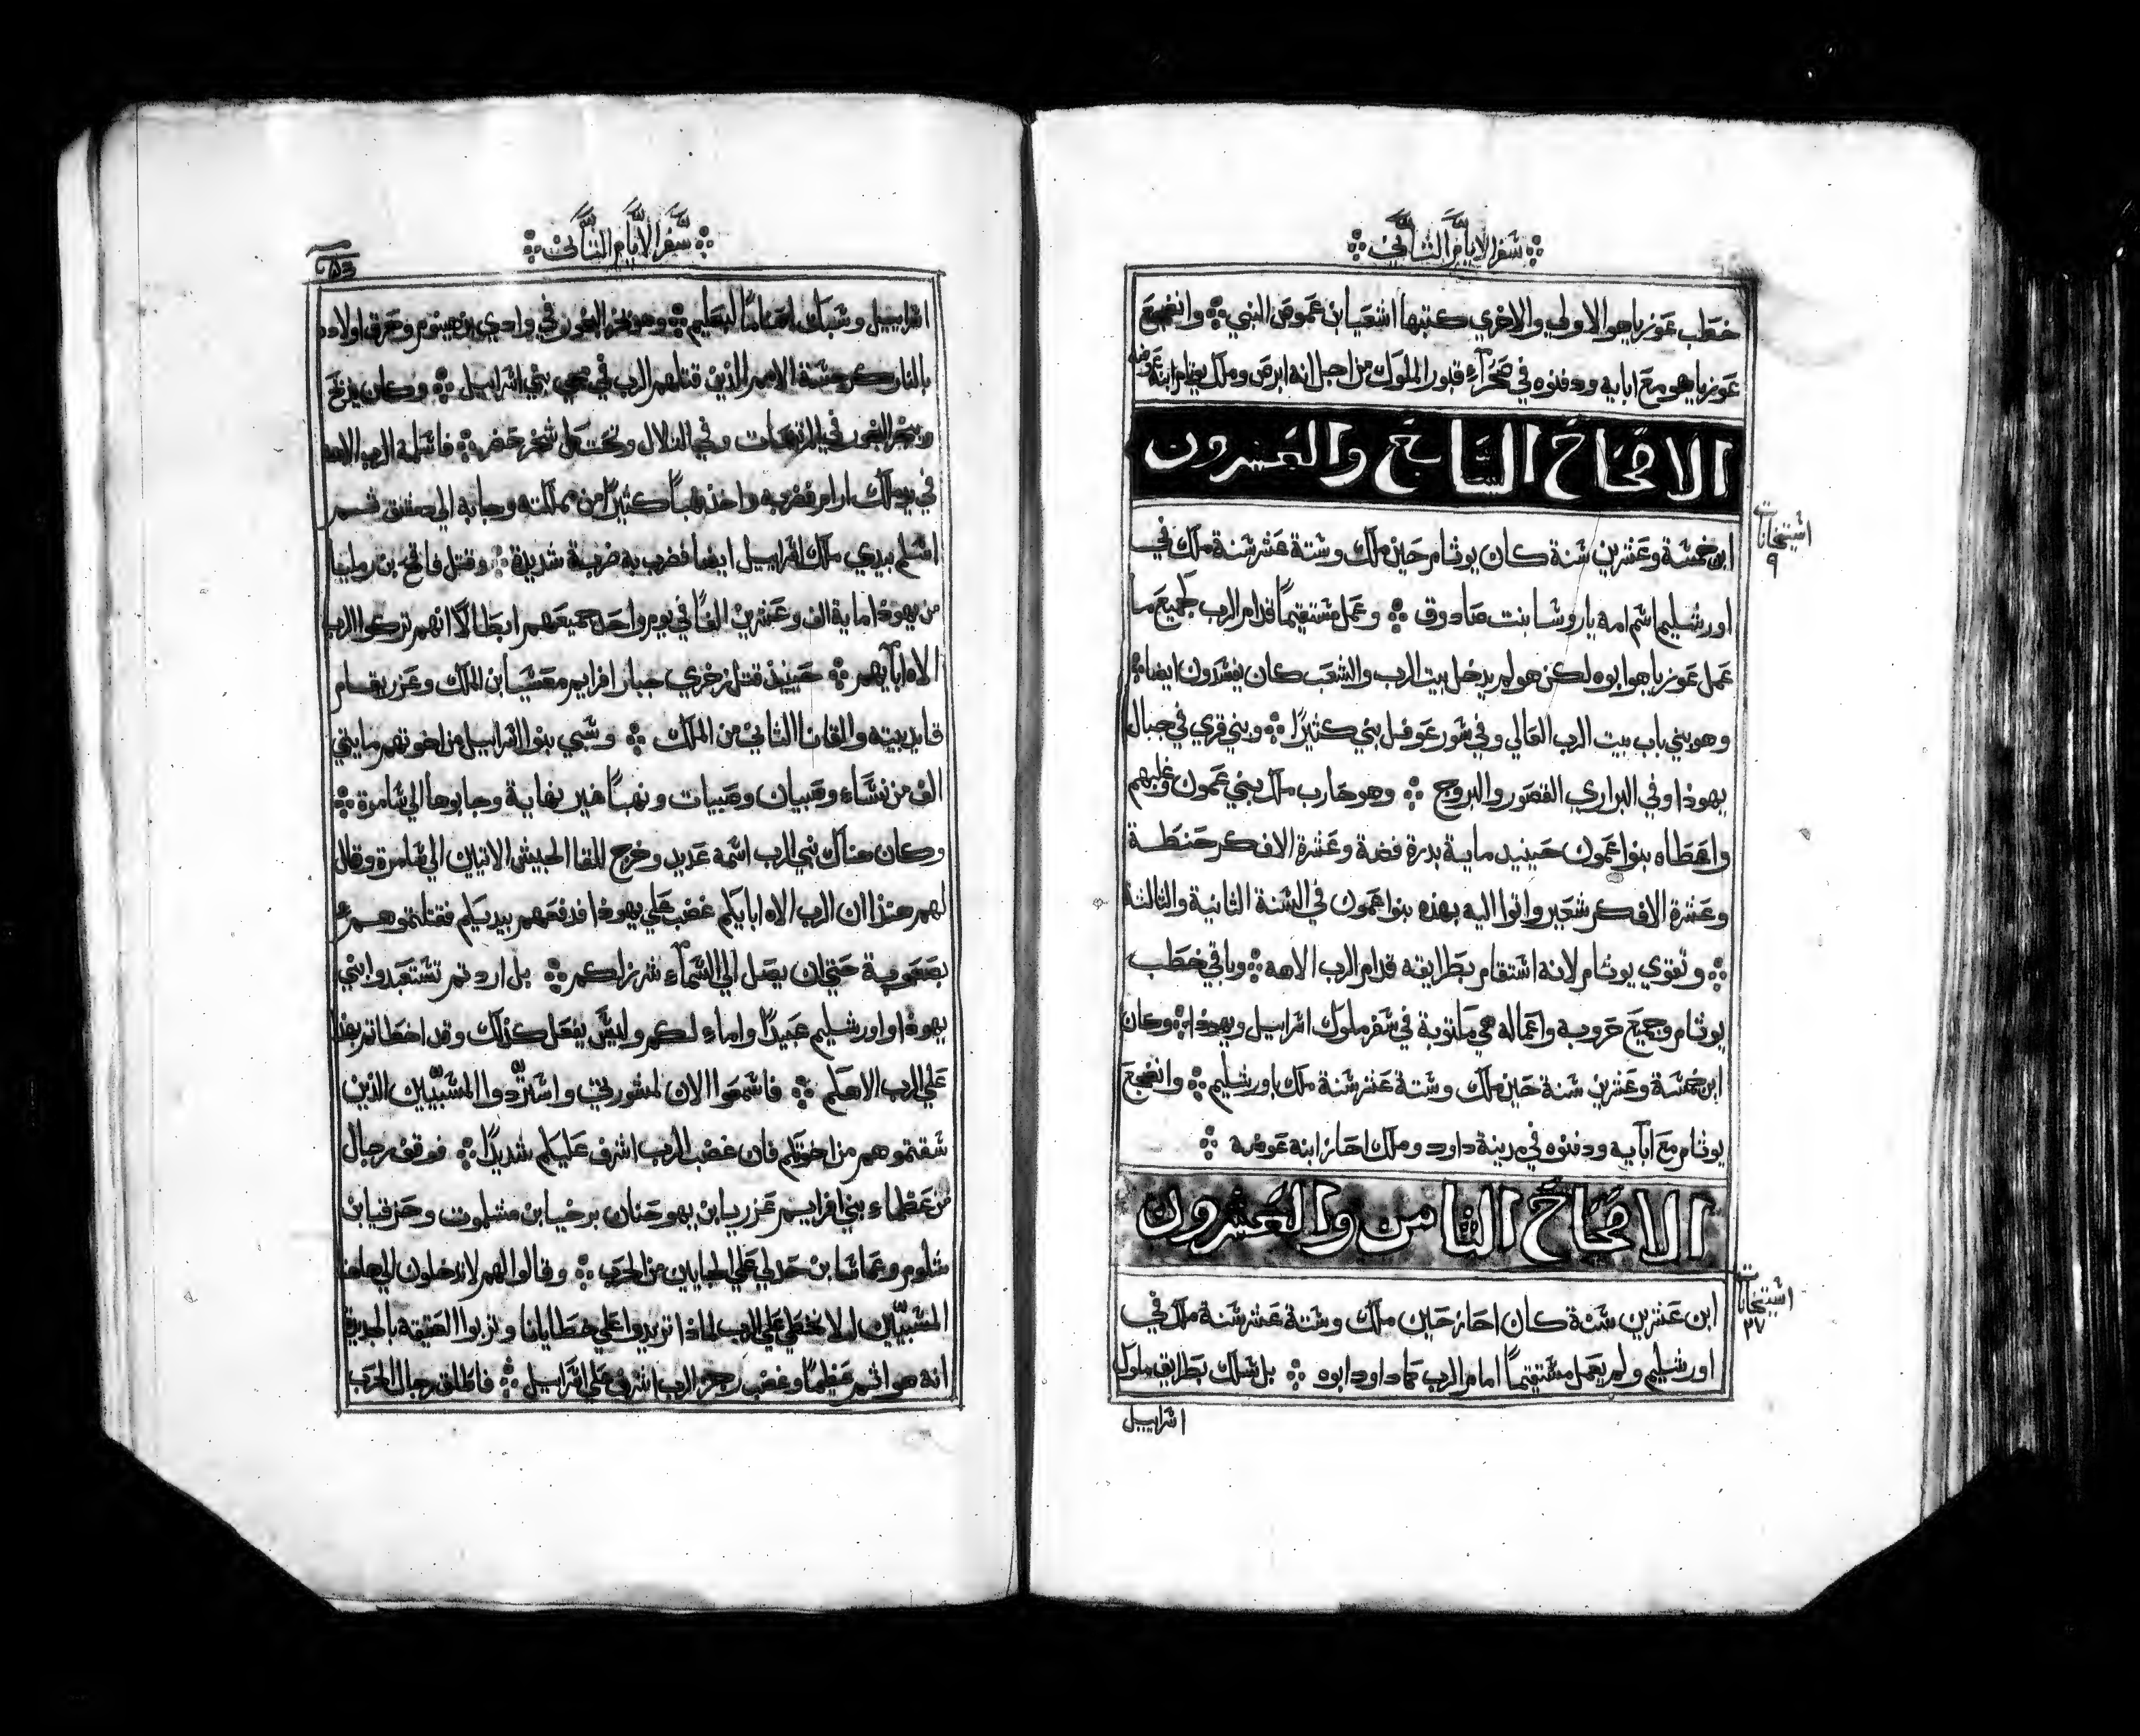 سفر الايام الثاني
خطب عوزياهو الاولي والاخري كتبها اشعيا ابن عموص النبي وانضجع
عوزياهو مع ابايه ودفنوه في صحرآء قبور الملوك من اجل انه ابرص وملك يوثام ابنه عوضه
الاصحاح السابع والعشرون
اشتيخانات
٩
ابن خمسة وعشرين سنة كان يوثام حين ملك وستة عشر سنة ملك في
اورشليم اسم امه ياروشا بنت صادوق وعمل مستقيمًا قدام الرب كجميع ما
عمل عوزياهو ابوه لكن هو لم يدخل بيت الرب والشعب كان يفسدون ايضا
وهو بني باب بيت الرب العالي وفي سور عوفل بني كثيرًا وبني قري في جبال
يهوذا وفي البراري القصور والبروج وهو حارب ملك بني عمون وغلبهم
واعطاه بنوا عمون حينيد ماية بدرة فضة وعشرة الاف كر حنطة
وعشرة الاف كر شعير واتوا اليه بهذه بنوا عمون في السنة الثانية والثالثة
وتقوي يوثام لانه استقام بطرايقه قدام الرب الاهه وباقي خطب
يوثام وجميع حروبه واعماله هي مكتوبة في سفر ملوك اسراييل ويهوذا وكان
ابن خمسة وعشرين سنة حين ملك وستة عشر سنة ملك باورشليم وانضجع
يوثام مع ابآيه ودفنوه في مدينة داود وملك احاز ابنه عوضه
الاصحاح الثامن والعشرون
اشتيخانات
٢٧
ابن عشرين سنة كان احاز حين ملك وستة عشر سنة ملك في
اورشليم ولم يعمل مستقيمًا امام الرب كما داود ابوه بل سلك بطرايق ملوك
اسراييل
سفر الايام الثاني
اسراييل وسباك اصنامًا لبعليم وهو بخر البخور في وادي بن هينوم وحرق اولاده
بالنار كرجسة الامم الذين قتلهم الرب في مجي بني اسراييل وكان يذبح
ويبخر البخور في المرتفعات وفي التلال وتحت كل شجر خضر فاسلمه الرب الاهه
في يد ملك ارام فضربه واخذ نهبًا كثيرًا من مملكته وجابه الي دمشق ثم
اسلم بيدي ملك اسراييل ايضا فضرب به ضربة شديدة وقتل فاقح بن رمليا
من يهوذا ماية الف وعشرين الفًا في يوم واحد جميعهم ابطالًا انهم تركوا الرب
الاه ابآيهم حينيذ قتل زخري جبار افرايم معشيا ابن الملك وعزريقام
قايد بيته والقانا الثاني من الملك وسبي بنوا اسراييل من اخوتهم مايتي
الف من نساء وصبيان وصبيات ونهبًا غير نهاية وجابوها الي شامرة
وكان هناك نبي الرب اسمه عديد وخرج للقا الجيش الاتيين الي شامرة وقال
لهم هنذا ان الرب الاه ابايكم غضب علي يهوذا فدفعهم بيديكم فقتلتموهم
بصعوبة حتي ان يصل الي السمآء شرزلكم بل اردتم تستعبدوا بني
يهوذا واورشليم عبيدًا واماء لكم وليس يفعل كذلك وقد اخطاتم بهذا
علي الرب الاهكم فاسمعوا الان لمشورتي واستردوا المسبيين الذين
سقتموهم من اخوتكم فان غضب الرب اشرف عليكم شديدًا فوقف رجال
من عظماء بني افرايم عزريا بن يهوحنان برخيا بن مشلموت وحزقيا بن
شلوم وعماشا بن حدلي علي الجايين من الحرب وقالوا لهم لا تدخلون الي هاهنا
المسبيين ليلا نخطي علي الرب لماذا تريدوا علي خطايانا وتزيدوا العتيقة بالجديدة
انه هو اثم عظيمًا وغضب رجز الرب اشرف علي اسراييل فاطلق رجال الحرب